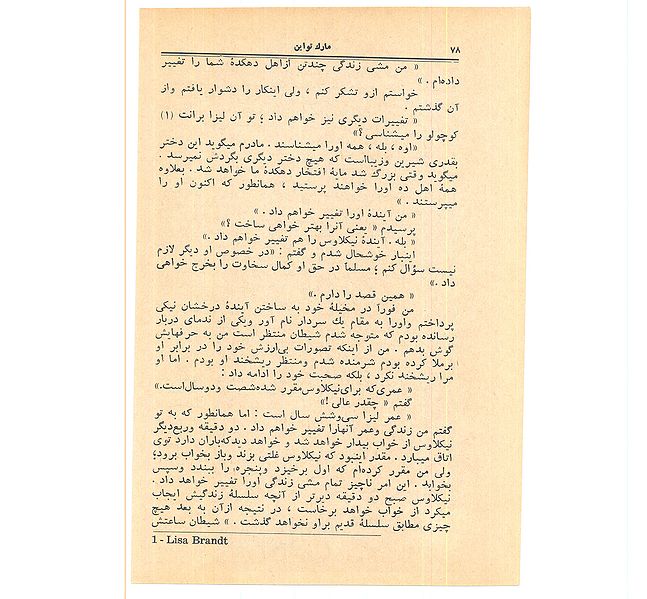 ۷۸
مارك تواین
« من مشی زندگی چندتن ازاهل دهکدهٔ شما را تغییر
داده‌ام . »
خواستم ازو تشکر کنم ، ولی اینکار را دشوار یافتم واز
آن گذشتم .
« تغییرات دیگری نیز خواهم داد ؛ تو آن لیزا برانت (۱)
کوچولو را میشناسی ؟»
«اوه ، بله ، همه اورا میشناسند . مادرم میگوید این دختر
بقدری شیرین وزیبااست که هیچ دختر دیگری بگردش نمیرسد .
میگوید وقتی بزرگ شد مایهٔ افتخار دهکدهٔ ما خواهد شد . بعلاوه
همهٔ اهل ده اورا خواهند پرستید ، همانطور که اکنون او را
میپرستند . »
« من آیندهٔ اورا تغییر خواهم داد . »
پرسیدم « یعنی آنرا بهتر خواهی ساخت ؟»
« بله . آیندهٔ نیکلاوس را هم تغییر خواهم داد .»
اینبار خوشحال شدم و گفتم : «در خصوص او دیگر لازم
نیست سؤال کنم ؛ مسلماً در حق او کمال سخاوت را بخرج خواهی
داد .»
« همین قصد را دارم .»
من فوراً در مخیلهٔ خود به ساختن آیندهٔ درخشان نیکی
پرداختم واورا به مقام یك سردار نام آور ویکی از ندمای دربار
رسانده بودم که متوجه شدم شیطان منتظر است من به حرفهایش
گوش بدهم . من از اینکه تصورات بی‌ارزش خود را در برابر او
برملا کرده بودم شرمنده شدم ومنتظر ریشخند او بودم . اما او
مرا ریشخند نکرد ، بلکه صحبت خود را ادامه داد :
« عمری‌که برای‌نیکلاوس‌مقرر شده‌شصت ودوسال‌است.»
گفتم « چقدر عالی !»
« عمر لیزا سی‌وشش سال است : اما همانطور که به تو
گفتم من زندگی وعمر آنهارا تغییر خواهم داد . دو دقیقه وربع‌دیگر
نیکلاوس از خواب بیدار خواهد شد و خواهد دیدکه‌باران دارد توی
اتاق میبارد . مقدر اینبود که نیکلاوس غلتی بزند وباز بخواب برود؛
ولی من مقرر کرده‌ام که اول برخیزد وپنجره‌را ببندد وسپس
بخوابد . این امر ناچیز تمام مشی زندگی اورا تغییر خواهد داد .
نیکلاوس صبح دو دقیقه دیرتر از آنچه سلسلهٔ زندگیش ایجاب
میکرد از خواب خواهد برخاست ، در نتیجه ازآن به بعد هیچ
چیزی مطابق سلسلهٔ قدیم براو نخواهد گذشت . » شیطان ساعتش
1 - Lisa Brandt